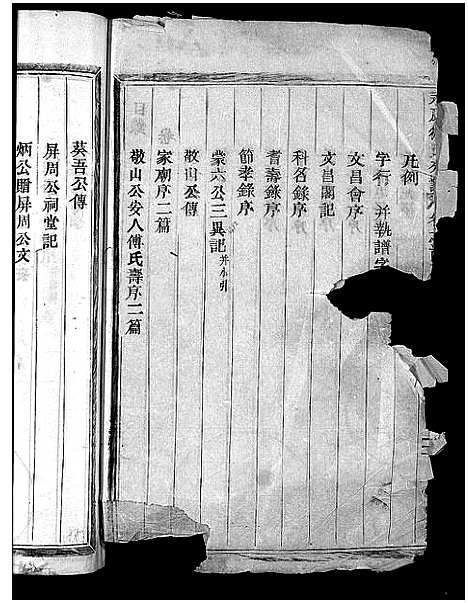 凡例
字行 并執譜字
文昌會序
文昌閣記
科名錄序
耆壽錄序
節孝錄序
蒙六公三異記
敬山公傳
家廟序二篇
敬山公安人傅氏壽序二篇
葵吾公傳
屏周公祠堂記
炳公贈屏周公文